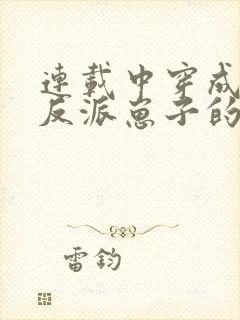 連載中穿成
反派崽子的
雷鈞